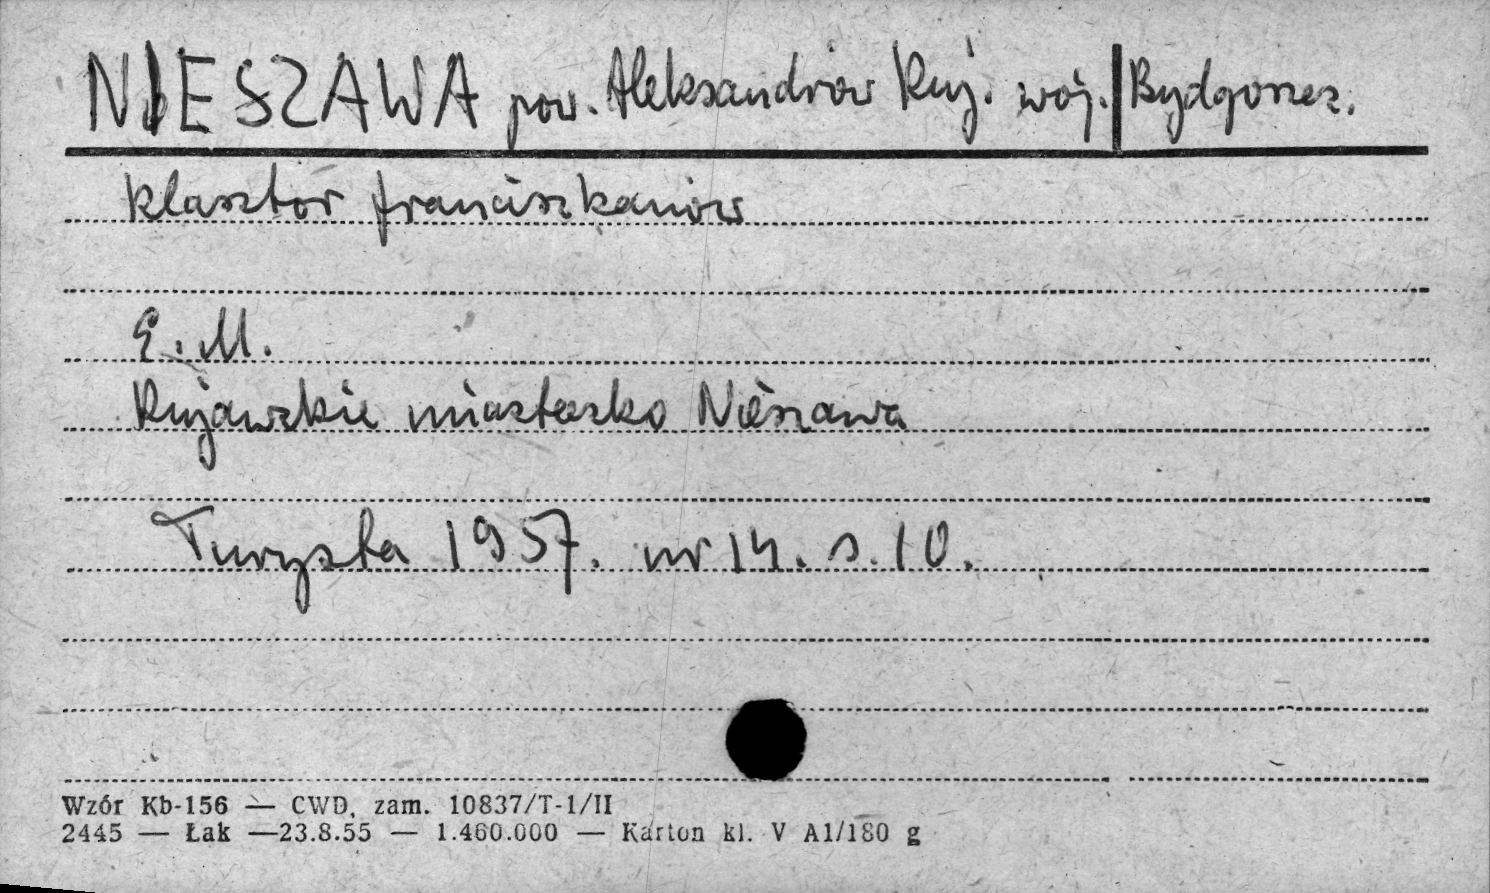 NIESZAWA pow. Aleksandrów Kuj. woj. Bydgoszcz.
klasztor franciszkanów
E. M.
Kujawskie miasteczko Nieszawa
Turysta 1957. nr 14. s. 10.
Wzór Kb-156 — CWD, zam. 10837/T-1/II
2445 — Łak —23.8.55 — 1.460.000 — Karton kl. V A1/180 g